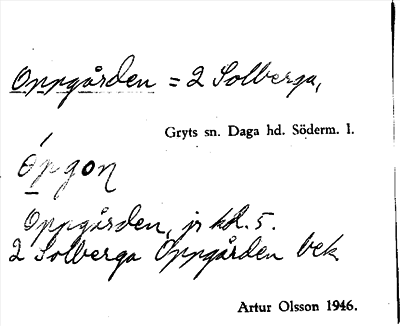 Oppgården = 2 Solberga,
Gryts sn. Daga hd. Söderm. l.
Oppgården, jr kd. 5.
2 Solberga Oppgården bek
Artur Olsson 1946.